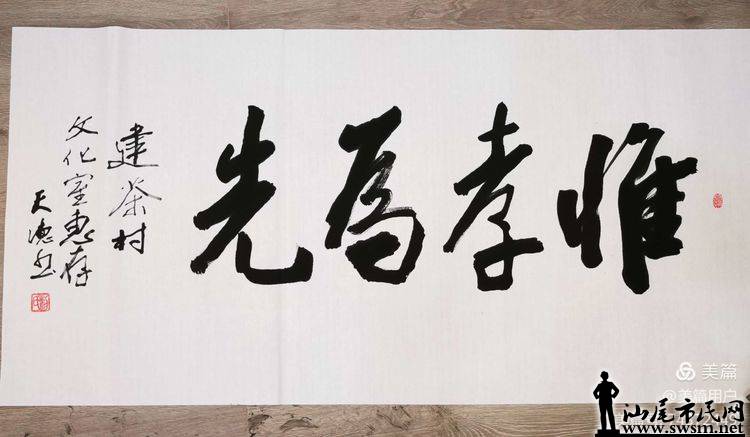 惟孝為先
建茶村
文化室惠存
天德书
美篇
@美篇用户
汕尾市民网
www.swsm.net